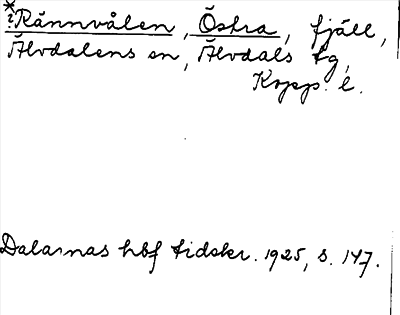 *?Rännvålen, Östra, fjäll,
Älvdalens sn, Älvdals tg,
Kopp. l.
Dalarnas hbf tidskr. 1925, s. 147.